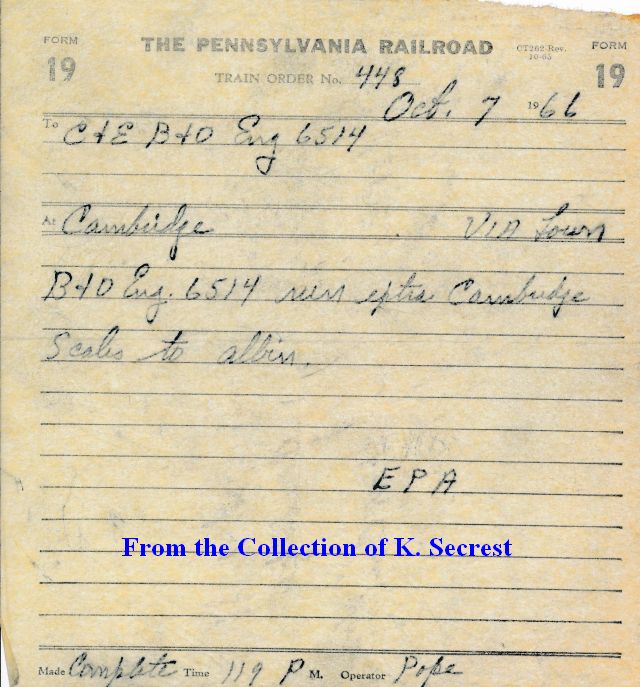 FORM 19 THE PENNSYLVANIA RAILROAD CT262-Rev. 10-65 FORM 19
TRAIN ORDER No. 448
Oct. 7 1966
To C+E B+O Eng 6514
At Cambridge VIA
B+O Eng. 6514 run extra Cambridge
Scales to
EPA
From the Collection of K. Secrest
Made Complete Time 119 P M. Operator Pope